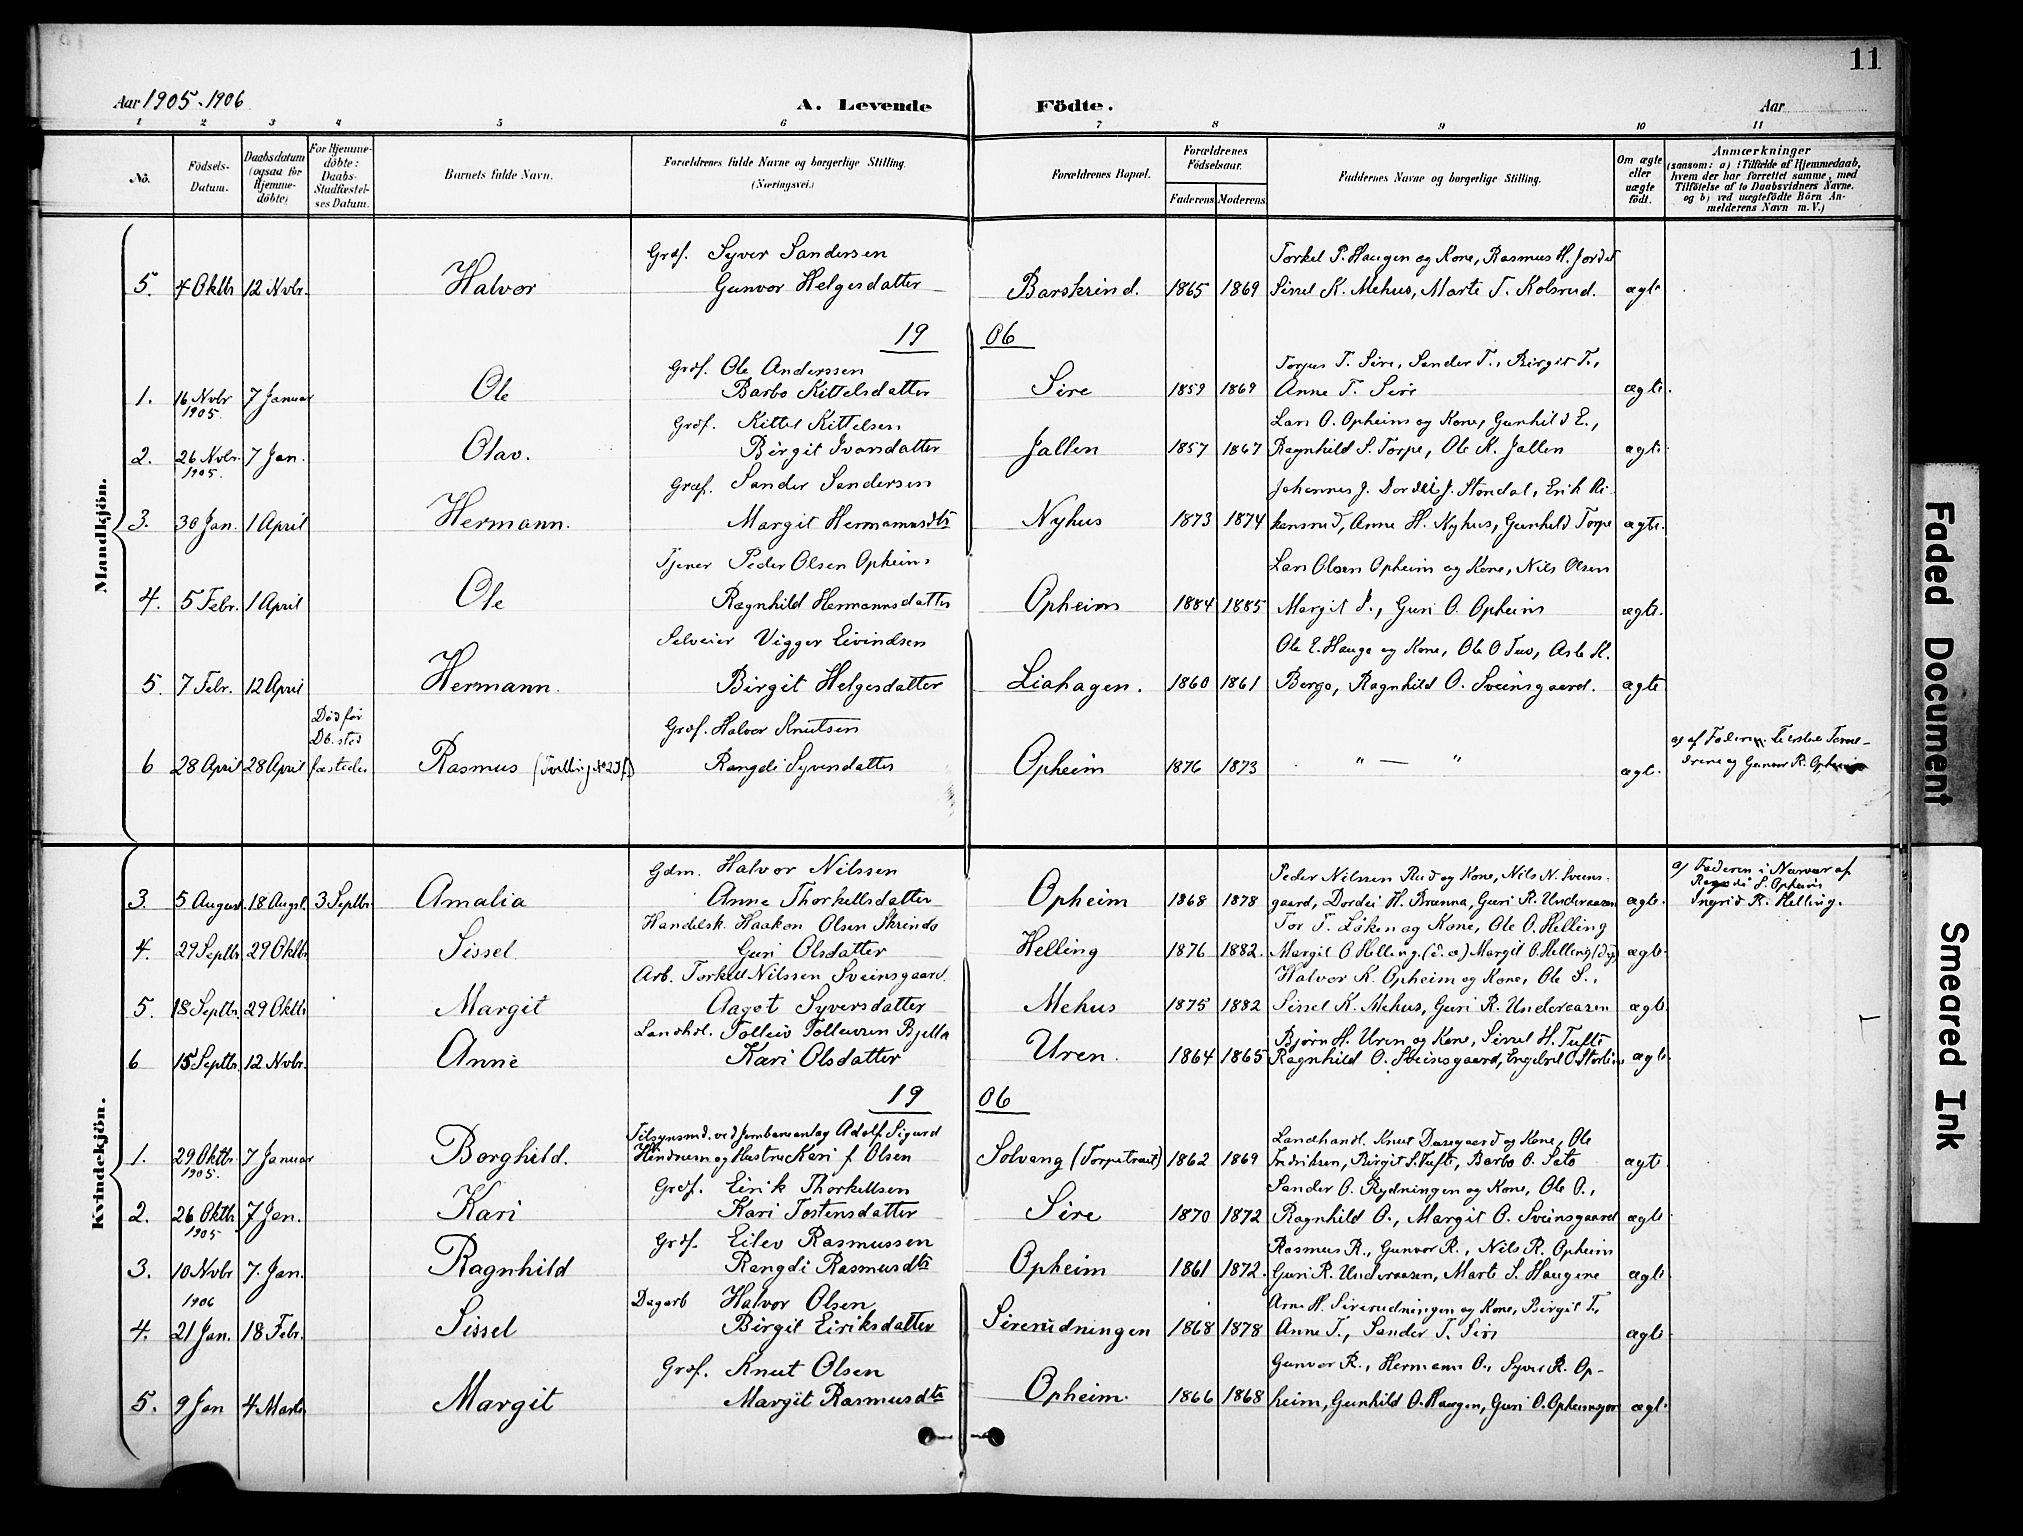 11
Aar 1905-1906
A. Levende Födte.
Aar
1 2 3 4 5 6 7 8 9 10 11
Nö.
Födsels-Datum.
Daabsdatum (ogsaa for Hjemmedöbte)
For Hjemmedöbte: Daabs-Stadfæstelses Datum.
Barnets fulde Navn.
Forældrenes fulde Navne og borgerlige Stilling. (Næringsvei.)
Forældrenes Bopæl.
Forældrenes Födselsaar.
Faderens Moderens
Faddernes Navne og borgerlige Stilling.
Om ægte eller uægte födt.
Anmærkninger
(saasom: a) i Tilfælde af Hjemmedaab, hvem der har forrettet samme, med Tilföielse af to Daabsvidners Navne. og b) ved uægtefödte Börn Anmelderens Navn m. V.)
Mandkjön.
Grdf. Syver Sandersen Torkel P. Haugen og Kone, Rasmus H. Jordet
5. 4 Oktbr 12 Nvbr. Halvor Gunvor Helgesdatter Barskrind. 1865 1869 Sissel K. Mehus, Marte T. Kolsrud. ægte
19 06
Grdf. Ole Anderssen Torjus T. Sire, Sander T., Birgit T.,
1. 16 Nvbr 1905. 7 Januar Ole Barbo Kittelsdatter Sire 1859 1869 Anne T. Sire ægte.
Grdf. Kittel Kittelsen Lars O. Opheim og Kone, Gunhild E.,
2. 26 Nvbr. 1905. 7 Jan. Olav. Birgit Ivarsdatter Jallen 1857 1867 Ragnhild S. Torpe, Ole K. Jallen ægte
Grdf. Sander Sandersen Johannes J. Dordei J. Stondal, Erik Ri-
3. 30 Jan. 1 April Hermann. Margit Hermannsdtr Nyhus 1873 1874 kansrud, Anne H. Nyhus, Gunhild Torpe ægte.
Tjener Peder Olsen Opheim Lars Olsen Opheim og Kone, Nils Olsen
4. 5 Febr. 1 April Ole Ragnhild Hermannsdatter Opheim 1884 1885 Margit P., Guri O. Opheim ægte.
Selveier Vigger Eivindsen Ole E. Hauge og Kone, Ole O Tuv, Asle K.
5. 7 Febr. 12 April Hermann. Birgit Helgesdatter Liahagen. 1860 1861 Bergo, Ragnhild O. Sveinsgaard. ægte
Död før Db. sted Grdf. Halvor Knutsen a) af Faderen
6 28 April 28 April fæstedes Rasmus (Tvilling Rangdi Syversdatter Opheim 1876 1873 " — " ægte. og Gunvor R. Opheim
Kvindekjön.
Gdm. Halvor Nilssen Peder Nilssen Rud og Kone, Nils N. Sveins- a) Faderen i Nærvær af
3. 5 August 18 Augst. 3 Septbr. Amalia Anne Thorkellsdatter Opheim 1868 1878 gaard, Dordei H. Brænna, Guri R. Underaasen ægte. Rangdi S. Opheim Ingrid K. Helling.
Handelsk. Haakon Olsen Skrindo Tor T. Löken og Kone, Ole O. Helling
4. 29 Septbr 29 Oktbr Sissel Guri Olsdatter Helling 1876 1882. Margit O Helling. (d. æ) Margit O. Helling (d y) ægte
Arb. Torkel Nilssen Sveinsgaard. Halvor K. Opheim og Kone, Ole S.,
5. 18 Septbr. 29 Oktbr Margit Aagot Syversdatter Mehus 1875 1882 Sissel K. Mehus, Guri R. Underaasen ægte
Landhdl. Tolleiv Tolleivsen Bjella Bjørn H. Uren og Kone, Sissel H. Tufte
6 15 Septbr. 12 Nvbr. Anne Kari Olsdatter Uren. 1864 1865 Ragnhild O. Sveinsgaard, ægte
19 06
Tilsynsmd. ved Jernbaneanlæg Adolf Sigurd Landhandl. Knut Dasegaard og Kone, Ole
1. 29 Oktbr. 1905. 7 Januar Borghild. og Hustru Kari f. Olsen Solvang (Torpetræet) 1862 1869 Fredriksen, Birgit S. Tufte, Barbo O. Sato ægte
Grdf. Eirik Thorkellsen Sander O. Rydningen og Kone, Ole O.,
2. 26 Oktbr. 1905 7 Jan. Kari Kari Tostensdatter Sire 1870 1872 Ragnhild O., Margit O. Sveinsgaard ægte
Grdf. Eilev Rasmussen Rasmus R., Gunvor R., Nils R. Opheim
3. 10 Nvbr 7. Jan. Ragnhild Rangdi Rasmusdtr Opheim 1861 1872. Guri R. Underaasen, Marte S. Haugene ægte.
1906 Dagarb Halvor Olsen Arne H. Sirerudningen og Kone, Birgit T.,
4. 21 Jan. 18 Febr. Sissel Birgit Eiriksdatter Sirerudningen 1868 1878 Anne T., Sander T. Sire ægte
Grdf. Knut Olsen Gunvor R., Hermann O., Syver R. Op-
5. 9 Jan 4 Marts Margit Margit Rasmusdtr Opheim. 1866 1868 heim, Gunhild O. Haugen, Guri O. ægte
Faded Document
Smeared Ink